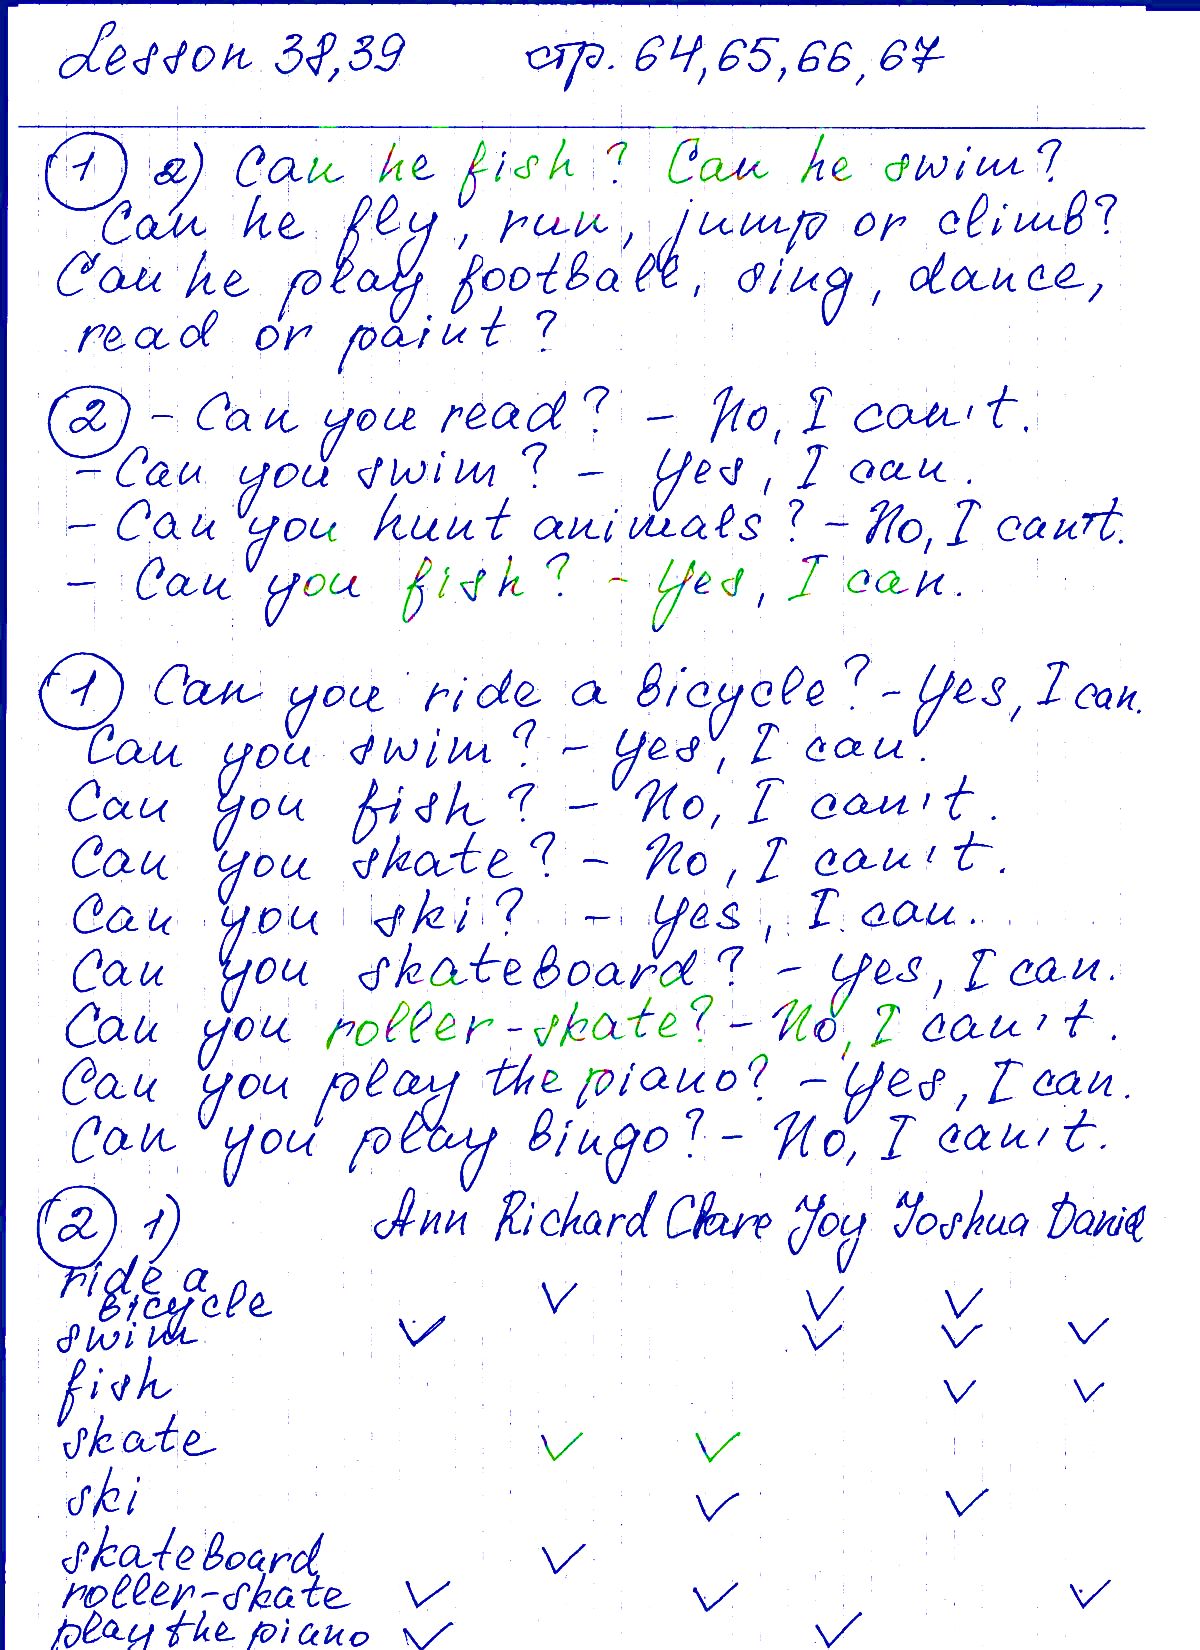 Lesson 38,39 стр. 64,65,66,67
1 а) Can he fish? Can he swim?
Can he fly, run, jump or climb?
Can he play football, sing, dance,
read or paint?
2 - Can you read? - No, I can't.
- Can you swim? - Yes, I can.
- Can you hunt animals? - No, I can't.
- Can you fish? - Yes, I can.
1 Can you ride a bicycle? - Yes, I can.
Can you swim? - Yes, I can.
Can you fish? - No, I can't.
Can you skate? - No, I can't.
Can you ski? - Yes, I can.
Can you skateboard? - Yes, I can.
Can you roller-skate? - No, I can't.
Can you play the piano? - Yes, I can.
Can you play bingo? - No, I can't.
2 1) Ann Richard Clare Joy Joshua Daniel
ride a
bicycle ✓ ✓ ✓
swim ✓ ✓ ✓ ✓
fish ✓ ✓
skate ✓ ✓
ski ✓ ✓
skateboard ✓
roller-skate ✓ ✓ ✓
play the piano ✓ ✓